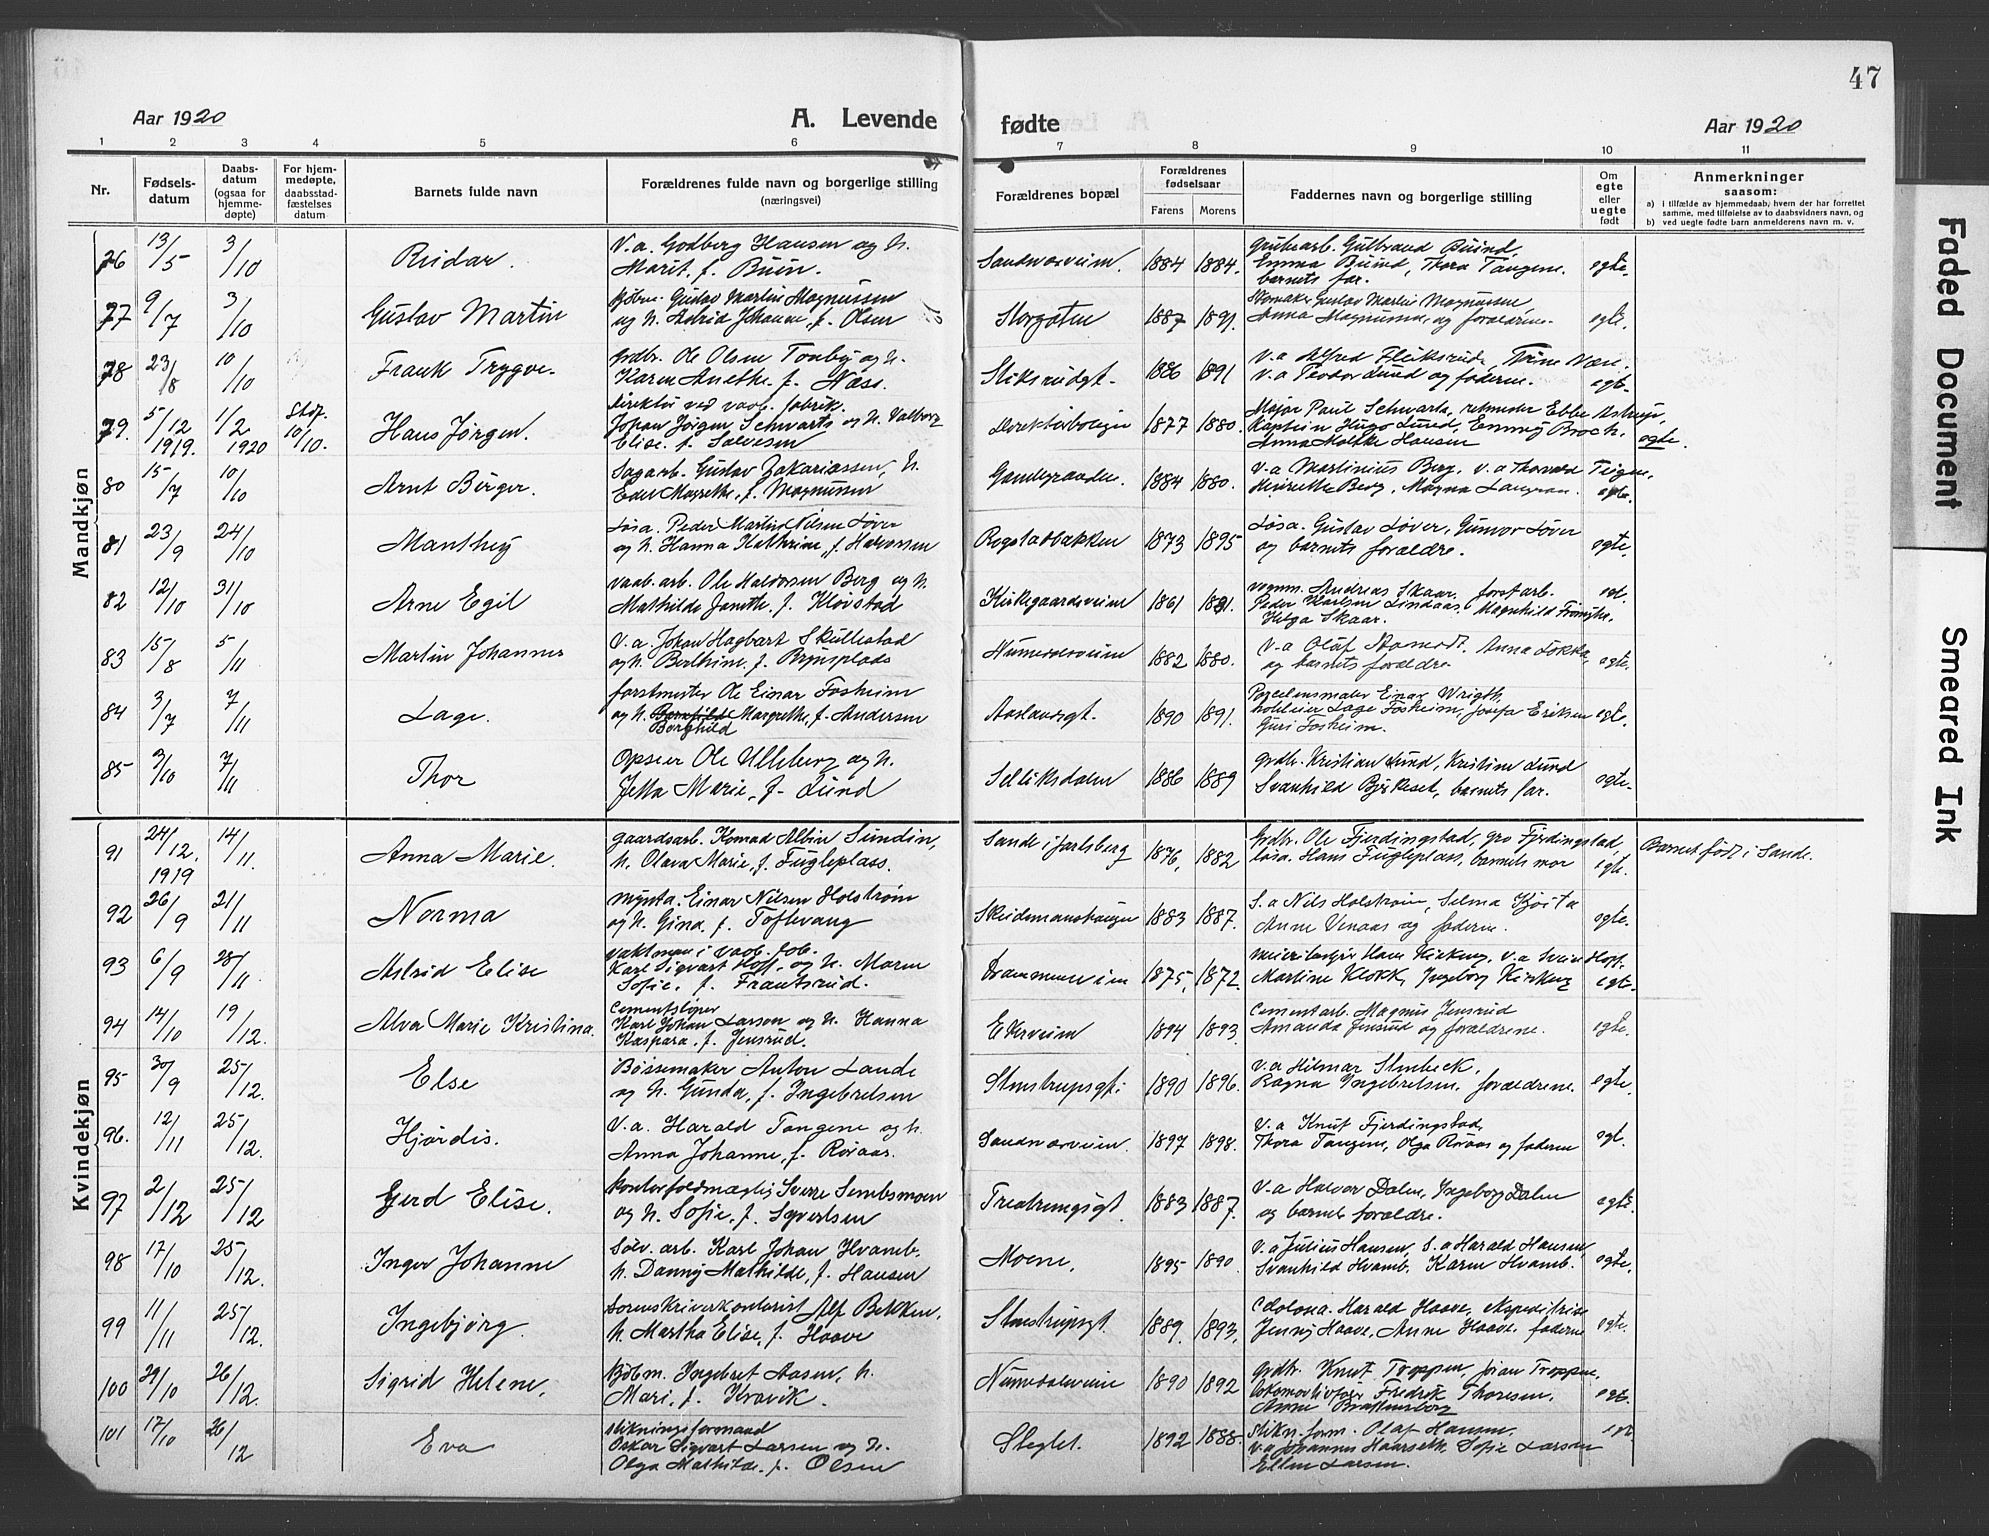 47
Aar 1920
A. Levende
fødte
Aar 1920
1 2 3 4 5 6 7 8 9 10 11
Nr.
Fødsels-
datum
Daabs-
datum
(ogsaa for
hjemme-
døpte)
For hjem-
medøpte,
daabsstad-
fæstelses
datum
Barnets fulde navn
Forældrenes fulde navn og borgerlige stilling
(næringsvei)
Forældrenes bopæl
Forældrenes
fødselsaar
Farens Morens
Faddernes navn og borgerlige stilling
Om
egte
eller
uegte
født
Anmerkninger
saasom:
a) i tilfælde av hjemmedaab, hvem der har forrettet
samme, med tilføielse av to daabsvidners navn, og
b) ved uegte fødte barn anmelderens navn m. v.
Mandkjøn
76 13/5 3/10 Reidar.
V.a. Godberg Hansen og h.
Marit, f. Buin.
Sandsværveien. 1884 1884.
Gulbrand Buind,
Emma Buind, Thora Tangene.
barnets far.
egte.
77 9/7 3/10 Gustav Martin
Gustav Martin Magnussen
og h. Astrid Johanne, f. Olsen
Storgaten 1887 1891.
Gustav Martin Magnussen,
Anna Magnussen, og forældrene.
egte.
78 23/8 10/10 Frank Trygve.
Grdbr. Ole Olsen Tonby og h.
Karen Anethe f. Næss.
1886 1891
V.a Alfred Fliksrud,
V.a Teodor Lund og faderne.
egte.
79. 5/12 1919. 1/2 1920 Stdf. 10/10. Hans Jørgen.
Direktør ved vaab. fabrik.
Johan Jørgen Schwartz og h. Valborg
Elise. f. Salvesen
Direktørboligen 1877 1880.
Major Paul Schwartz, Ebbe Astrup,
Kaptein Hugo Lund, Emmy Broch,
Anna Moltke Hansen
egte.
80 15/7 10/10 Arnt Birger.
Sagarb. Gustav Zakariassen, h.
Magrethe, f. Magnussen
1884 1880.
V.a Martinius Berg, V.a Thorvald Teigen,
Berg, Magna
egte.
81 23/9 24/10 Manthey
Løsa. Peder Martin Nilsen Løver
og h. Hanna Kathrine, f. Halvorsen
Rogstadbakken 1873 1895
Løsa. Gustav Løver, Gunvor Løver
og barnets forældre.
egte.
82 12/10 31/10 Arne Egil
Vaab. arb. Ole Haldorsen Berg og h.
Mathilde Janette, f. Kløvstad
Kirkegaardsveien 1861
Vognm. Andreas Skaar. forstarb.
Peder Karlsen Lindaas. Magnhild
Helga Skaar.
83 15/8 5/11 Martin Johannes
V.a. Johan Hagbart Skullestad
og h. Berthine, f. Brynsplads
Numedalsveien 1882 1880.
V.a Olaf Anna Løkka,
og barnets forældre
egte.
84 3/7 7/11 Lage.
forstmester Ole Einar Fosheim
og h. Margrethe, f. Andersen
Borghild
Aaslandsgt. 1890 1891.
Porcelensmaler Einar Wrigth,
Lage Fosheim, Josefa Eriksen
Guri Fosheim.
egte.
85 3/10 7/11 Thor
Opseer Ole Ulleberg og h.
Jetta Marie, f. Lund
Selliksdalen 1886 1889
Grdbr. Kristian Lund, Kristine Lund
Svanhild Bjerkeset, barnets far.
egte.
Kvindekjøn
91 24/12. 1919 14/11. Anna Marie.
gaardsarb. Konrad Albin Sundin,
h. Olava Marie, f. Fugleplass.
Sande i Jarlsberg 1876, 1882
Grdbr. Ole Fjerdingstad, Gro Fjerdingstad,
løsa. Hans Fugleplass, barnets mor
egte.
Barnet født i Sande.
92 26/9 21/11 Norma
Mynta. Einar Nilsen Holstrøm
og h. Gina, f. Toftevang
1883 1887.
S.a Nils Holstrøm, Selma
Anne Venaas og faderne.
egte.
93 6/9 28/11 Astrid Elise
Vaktman i vaab. fab.
Karl Sigvart Hoff, og h. Maren
Sofie, f. Frantsrud.
Drammensveien 1875, 1872.
Hans Kirkeng, V.a Svein
Martine Klokk, Ingeborg Kirkeng
egte.
94 14/10 19/12. Alva Marie Kristina.
Cementstøper
Karl Johan Larsen og h. Hanna
Kaspara, f. Jensrud.
Ekerveien 1894 1893.
Cementarb. Magnus Jensrud
Amanda Jensrud og forældrene.
egte.
95 30/9 25/12. Else
Bøssemaker Anton Lande
og h. Gunda, f. Ingebretsen
Stenstrupsgt. 1890 1896.
V.a Hilmar Stenbeck,
Ragna Ingebretsen, forældrene.
egte.
96. 12/11 25/12. Hjørdis.
V.a. Harald Tangene og h.
Anna Johanne, f. Røraas.
Sandsværveien. 1897 1898.
V.a Knut Fjerdingstad,
Thora Tangene, Olga Røraas og faderne
egt.
97 2/12 25/12 Gerd Elise.
Kontorfuldmægtig Sverre Sembsmoen
og h. Sofie, f. Syvertsen
1883 1887.
V.a Halvor Dalen, Ingeborg Dalen
og barnets forældre.
egte.
98 17/10 25/12. Inger Johanne
Sølv. arb. Karl Johan Hvamb.
h. Danny Mathilde, f. Hansen
Moene, 1895 1890
V.a Julius Hansen, S.a Harald Hansen,
Svanhild Hvamb. Karen Hvamb.
egte.
99 11/11 25/12. Ingebjørg
Sorenskriverkontorist Alf Bekken,
h. Martha Elise, f. Haave
Stenstrupsgt. 1889. 1893.
Harald Haave, ekspeditrise
Jenny Haave, Anne Haave, faderne
egte.
100 29/10 26/12. Sigrid Helene,
Kjøbm. Ingebret Aasen, h.
Mari, f. Kravik.
Numedalsveien 1890 1892
Grdbr. Knut Troppen, Troppen,
Lokomotivfører Fredrik Thoresen,
Anne
egte.
101 17/10 26/12 Eva
Likningsformand
Oskar Sigvart Larsen og h.
Olga Mathilde. f. Olsen
Steglet. 1892 1888.
Likn. form. Olaf Hansen.
V.a Johannes Haarseth, Sofie Larsen
Ellen Larsen.
Faded Document
Smeared Ink